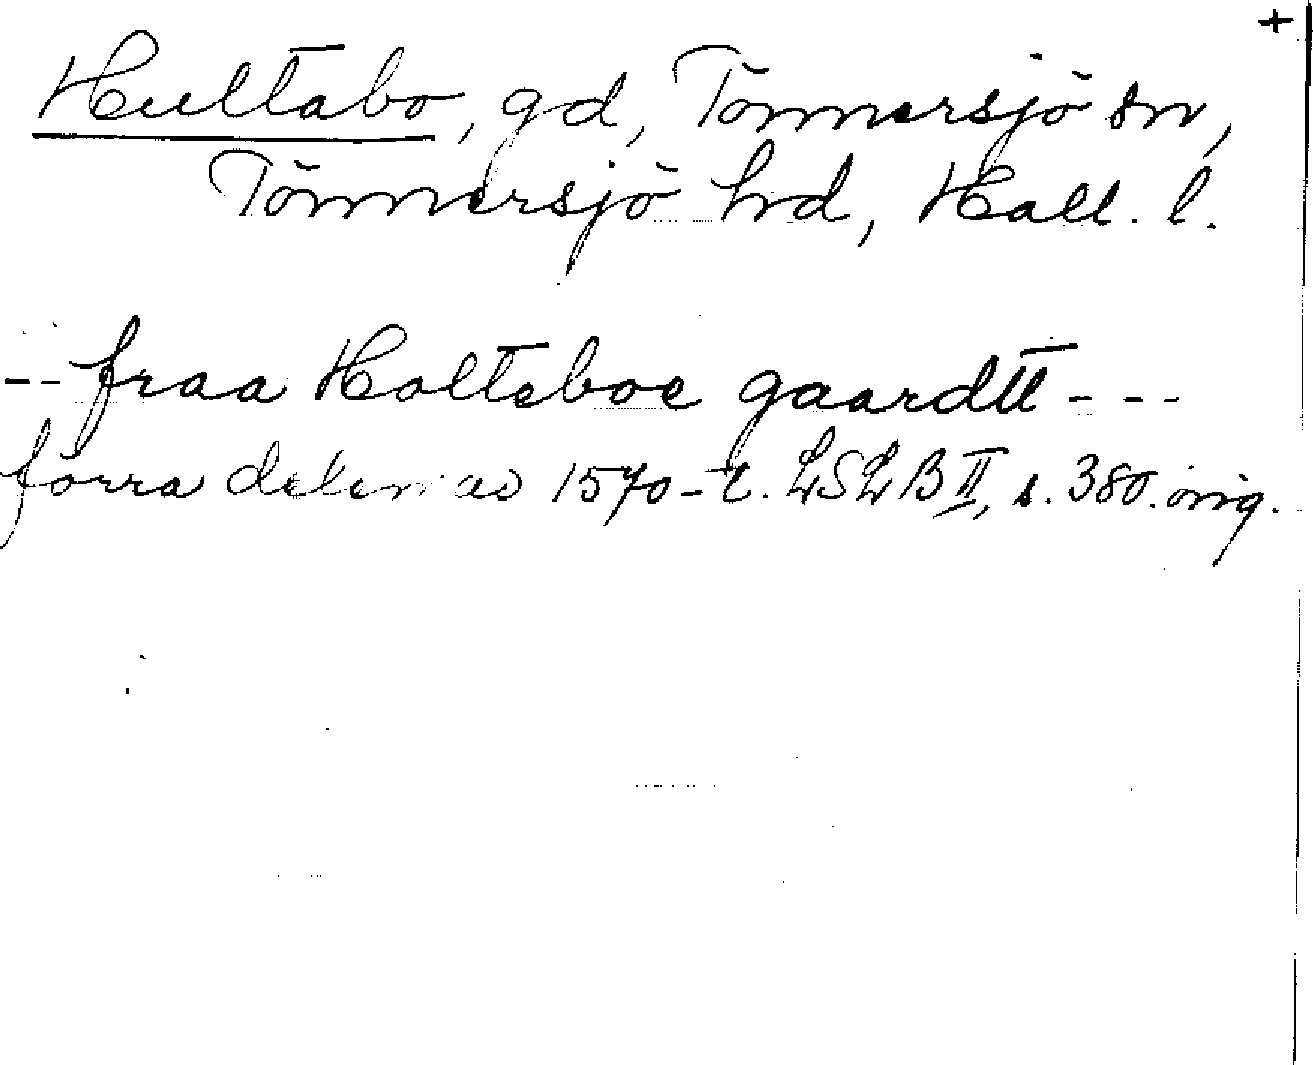 +
Hultabo, gd, Tönnersjö sn,
Tönnersjö hrd, Hall. l.
-- fraa Holteboe gaardtt ---
förra delen av 1570-t. LSLB II, s. 380. orig.